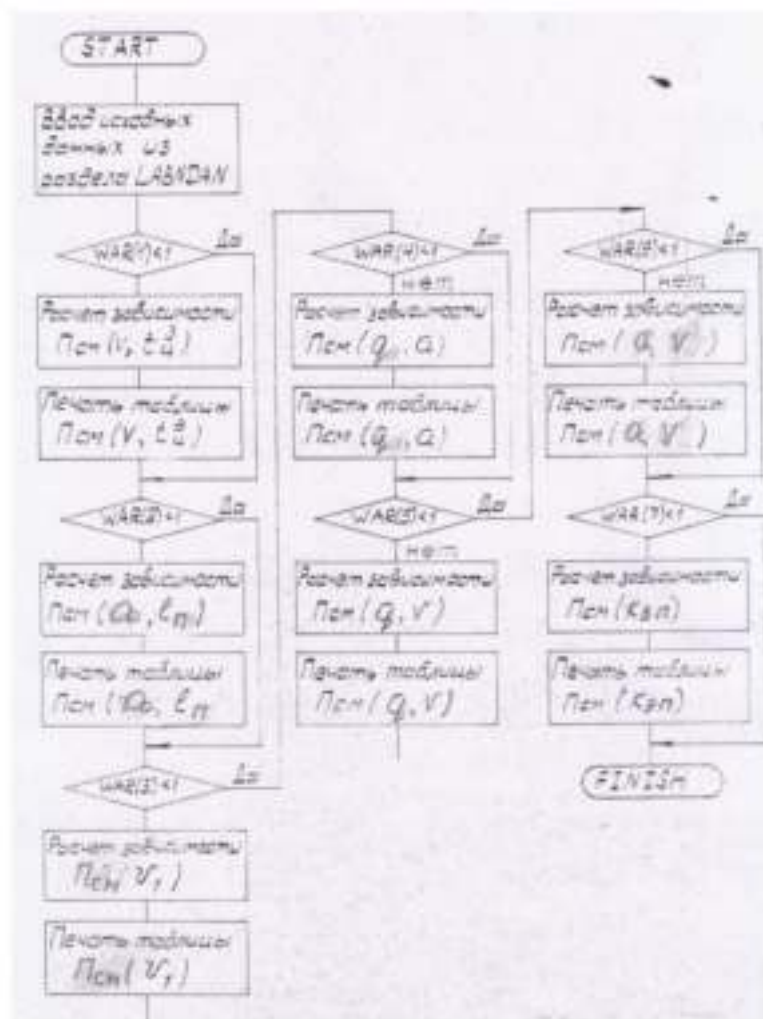 START
Ввод исходных
данных из
раздела LABNDAN
WAR(1)<1
Да
Расчет зависимости
Псм(V,
Печать таблицы
Псм(V,
WAR(2)<1
Да
Расчет зависимости
Псм(
Печать таблицы
Псм(
WAR(3)<1
Да
Расчет зависимости
Псм(V,)
Печать таблицы
Псм(V,)
WAR(4)<1
Да
нет
Расчет зависимости
Псм(q, a)
Печать таблицы
Псм(q, a)
WAR(5)<1
Да
нет
Расчет зависимости
Псм(q, V)
Печать таблицы
Псм(q, V)
WAR(6)<1
Да
нет
Расчет зависимости
Псм(a, V)
Печать таблицы
Псм(a, V)
WAR(7)<1
Да
Расчет зависимости
Псм(Kзп)
Печать таблицы
Псм(Kзп)
FINISH